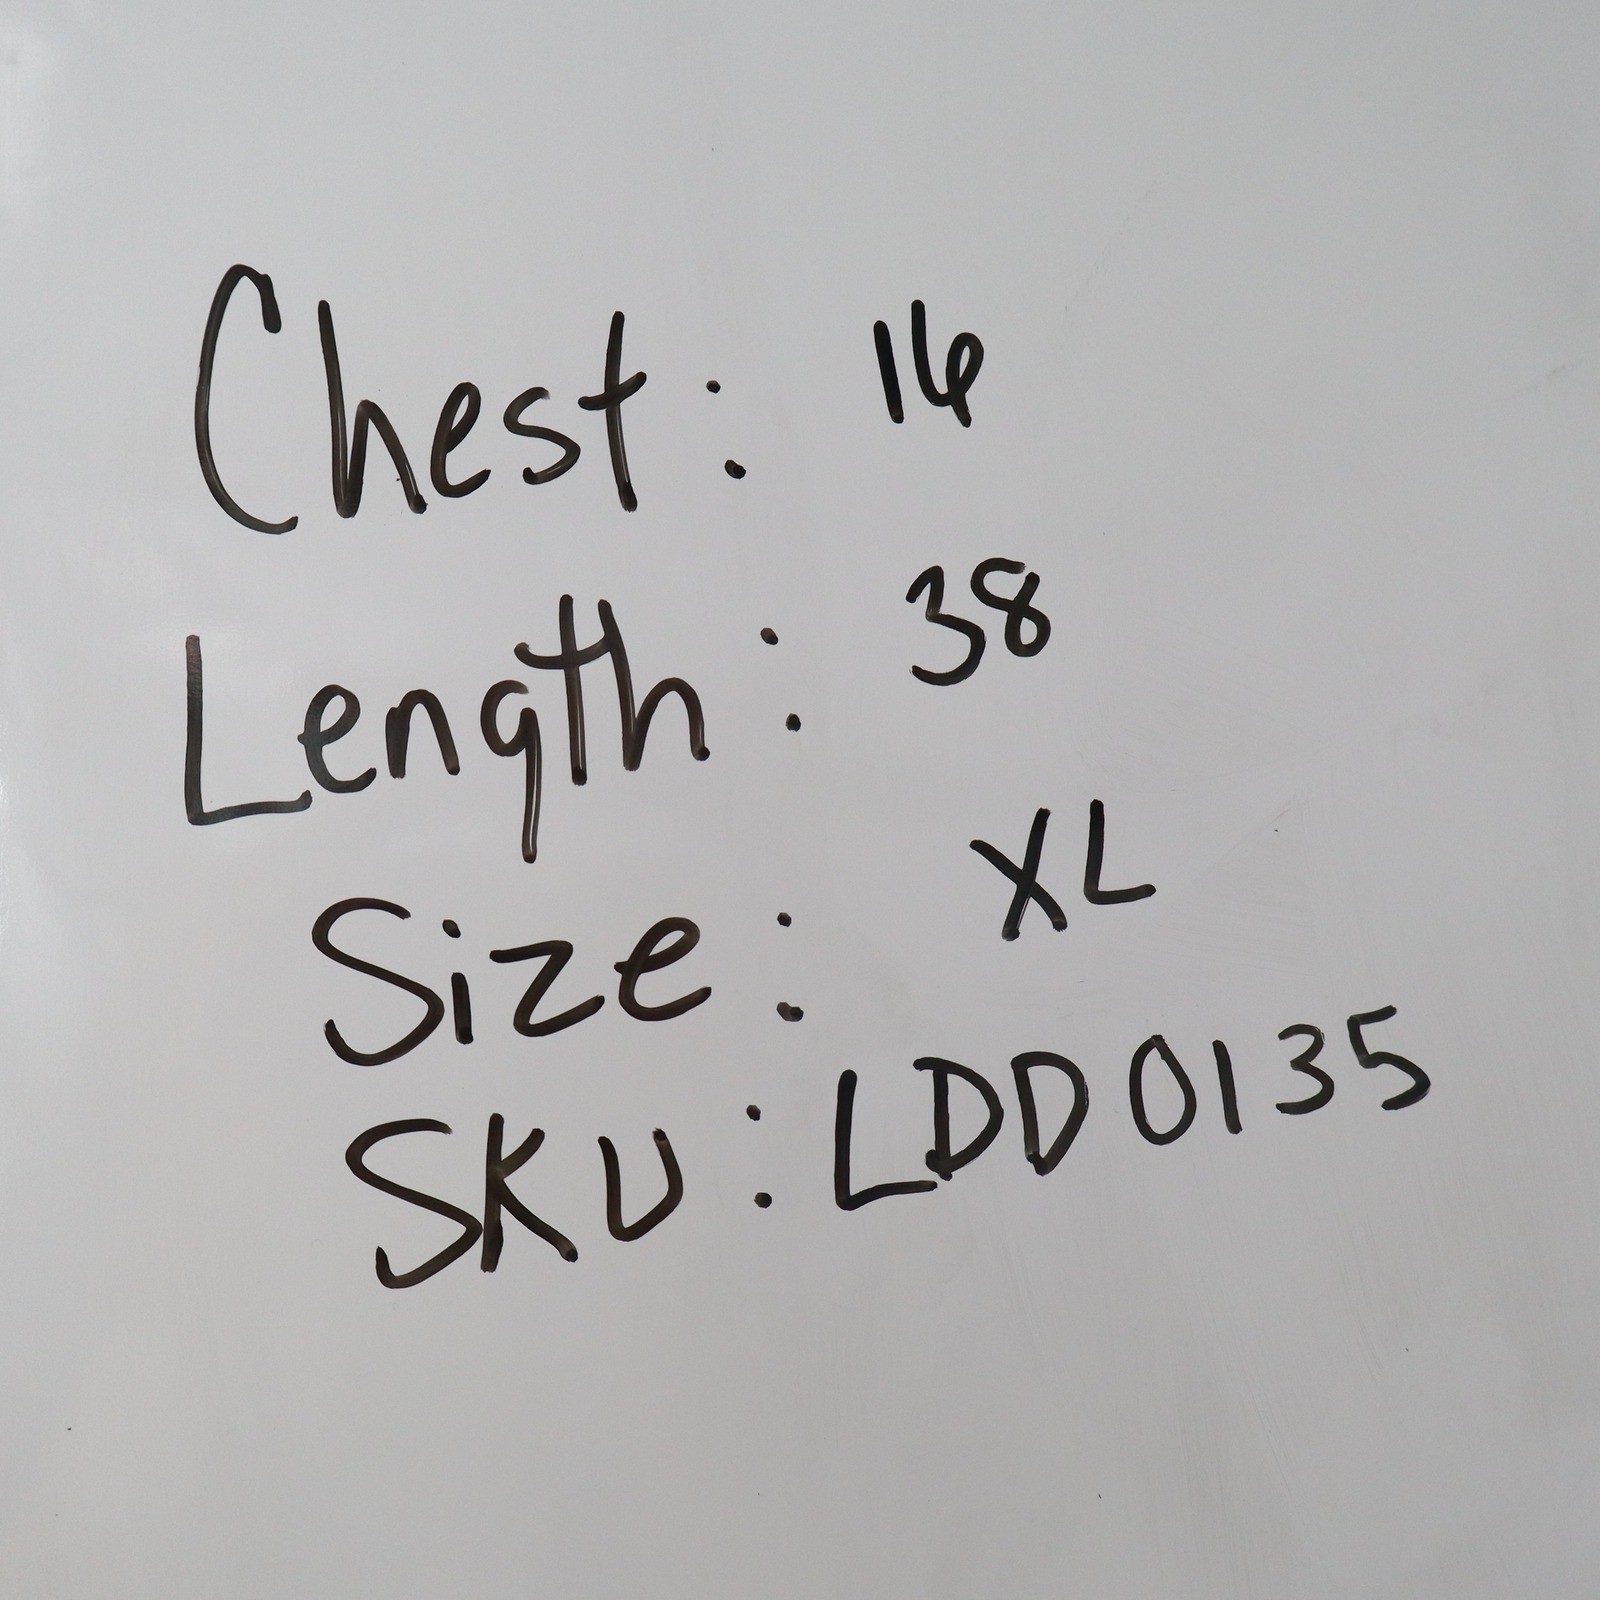 Chest: 16
Length: 38
Size: XL
SKU: LDD0135